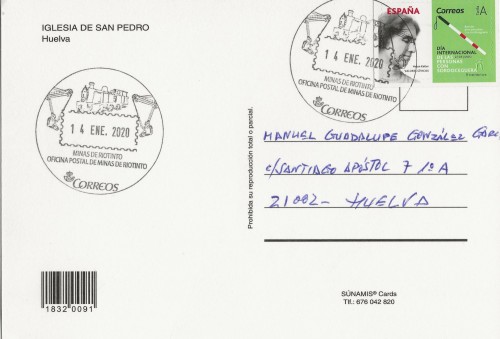 IGLESIA DE SAN PEDRO
Huelva
14 ENE. 2020
MINAS DE RIOTINTO
OFICINA POSTAL DE MINAS DE RIOTINTO
CORREOS
14 ENE. 2020
MINAS DE RIOTINTO
OFICINA POSTAL DE MINAS DE RIOTINTO
CORREOS
ESPAÑA
Correos
A
DÍA
INTERNACIONAL
DE LAS
PERSONAS
CON
SORDOCEGUERA
MANUEL GUADALUPE GONZÁLEZ
C/SANTIAGO APÓSTOL 7 1º A
21002- HUELVA
Prohibida su reproducción total o parcial.
1832 0091
SÚNAMIS® Cards
Tlf.: 676 042 820